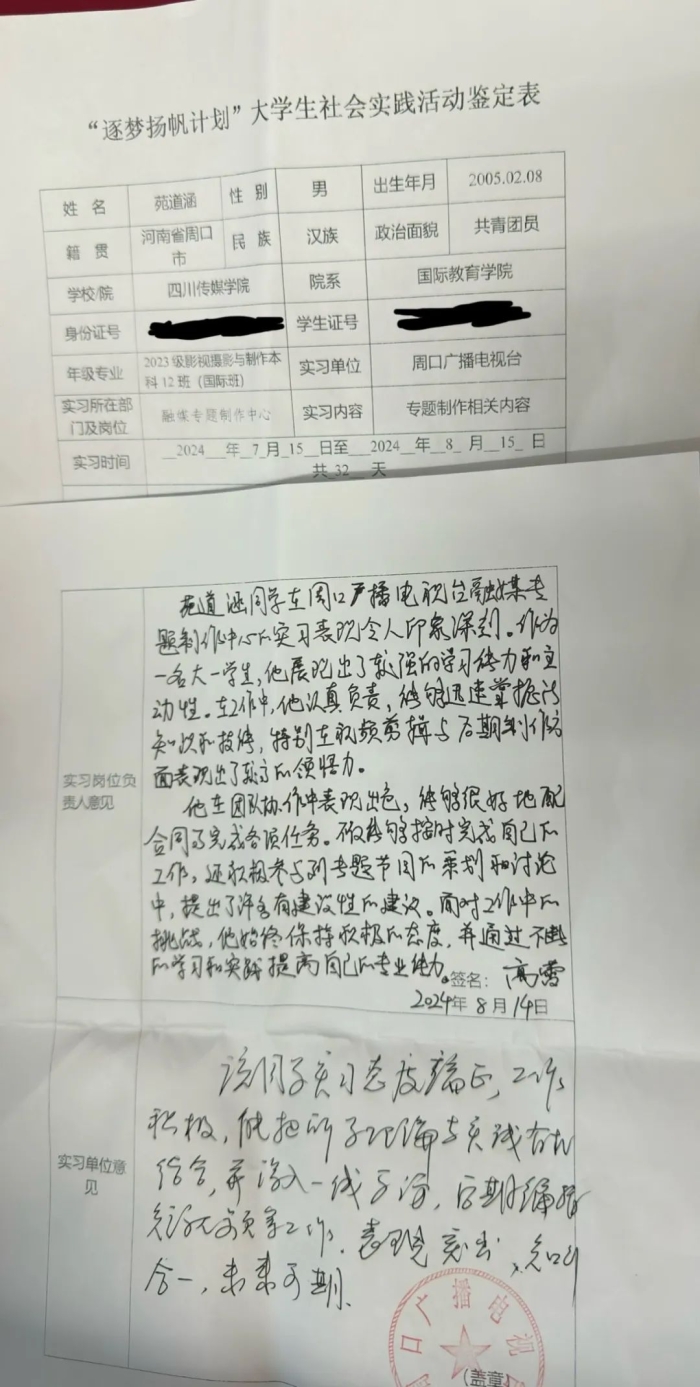 “逐梦扬帆计划”大学生社会实践活动鉴定表
姓 名 苑道涵 性 别 男 出生年月 2005.02.08
籍 贯 河南省周口市 民 族 汉族 政治面貌 共青团员
学校/院 四川传媒学院 院系 国际教育学院
身份证号 学生证号
年级专业 2023级影视摄影与制作本科12班（国际班） 实习单位 周口广播电视台
实习所在部门及岗位 融媒专题制作中心 实习内容 专题制作相关内容
实习时间 2024 年 7 月 15 日至 2024 年 8 月 15 日
共 32 天
实习岗位负责人意见
苑道涵同学在周口广播电视台融媒专
题制作中心的实习表现令人印象深刻。作为
一名大一学生，他展现出了较强的学习能力和主
动性。在工作中，他认真负责，能够迅速掌握
知识和技能，特别在视频剪辑与后期制作方
面表现出了较高的领悟力。
他在团队协作中表现出色，能够很好地配
合同事完成各项任务。不仅能够按时完成自己的
工作，还积极参与到专题节目的策划和讨论
中，提出了许多有建设性的建议。面对工作中的
挑战，他始终保持积极的态度，并通过不断
的学习和实践提高自己的专业能力。
签名：高雪
2024年 8 月 14日
实习单位意见
该同学实习态度端正，工作
积极，能把所学理论与实践有机
结合，并深入一线采访，后期编辑
等工作，表现突出，知行
合一，未来可期。
周口广播电视
（盖章）